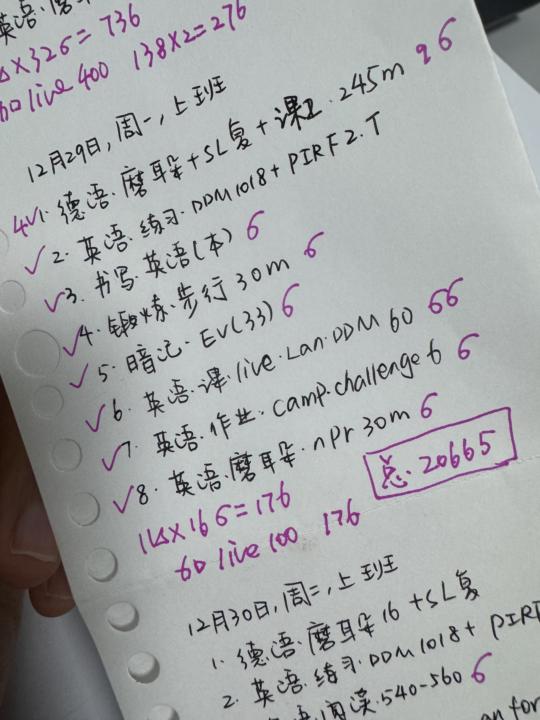 英语
×326=736
60 live 400 138×2=276
12月29日,周一,上班
4✓1. 德语.磨耳朵+SL复+课2.245m 96
✓2. 英语.练习.DDM1018+PIRF2.T
✓3. 书写.英语(本) 6
✓4. 锻炼.步行30m 6
✓5. 暗记.EV(33) 6
✓6. 英语.课.live.Lan.DDM 60 66
✓7. 英语.作业.camp.challenge 6 6
✓8. 英语.磨耳朵.nPr 30m 6
总.20665
×166=176
60 live 100 176
12月30日,周二,上班
1. 德语.磨耳朵16+SL复
2. 英语.练习.DDM1018+PIRF
英语.阅读.540-560 6